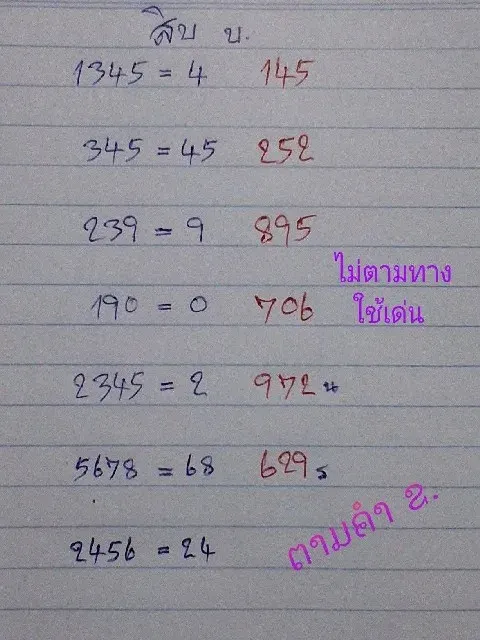 สิบ บ.
1345 = 4 145
345 = 45 252
239 = 9 895
ไม่ตามทาง
ใช้เด่น
190 = 0 706
2345 = 2 972 น
5678 = 68 629 ร
2456 = 24
ตามคำ ข.